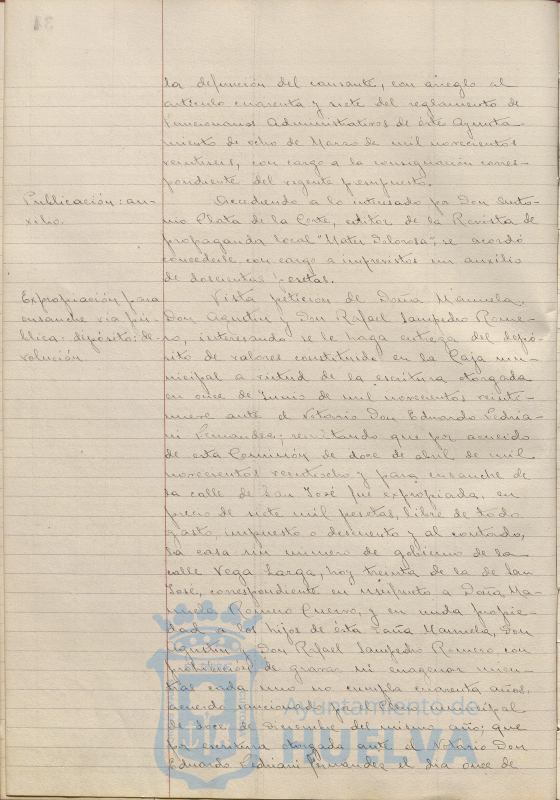 la defunción del causante, con arreglo al
artículo cuarenta y siete del reglamento de
Funcionarios Administrativos de este Ayunta-
miento de ocho de Marzo de mil novecientos
veintiseis, con cargo a la consignación corres-
pondiente del vigente presupuesto.
Publicación: au-
xilio.
Accediendo a lo interesado por Don Anto-
nio Plata de la Corte, editor de la Revista de
propaganda local "Mater Dolorosa", se acordó
concederle, con cargo a imprevistos un auxilio
de doscientas pesetas.
Expropiación para
ensanche via pú-
blica: depósito: de-
volución
Vista petición de Doña Manuela,
Don Agustín y Don Rafael Sampedro Rome-
ro, interesando se le haga entrega del depó-
sito de valores constituido en la Caja mu-
nicipal a virtud de la escritura otorgada
en once de Junio de mil novecientos veinti-
nueve ante el Notario Don Eduardo Ledria-
ni Fernandez; resultando que por acuerdo
de esta Comisión de doce de abril de mil
novecientos veintiocho y para ensanche de
la calle de San José fue expropiada, en
precio de siete mil pesetas, libre de todo
gasto, impuesto o descuento y al contado,
la casa sin numero de gobierno de la
calle Vega Larga, hoy treinta de la de San
José, correspondiente en usufructo a Doña Ma-
nuela Romero Cuervo, y en nuda propie-
dad a los hijos de ésta Doña Manuela, Don
Agustín y Don Rafael Sampedro Romero con
prohibición de gravar ni enagenar mien-
tras cada uno no cumpla cuarenta años,
acuerdo sancionado por el Pleno municipal
de doce de Diciembre del mismo año; que
por escritura otorgada ante el Notario Don
Eduardo Ledriani Fernandez el día once de
Ayuntamiento de
HUELVA